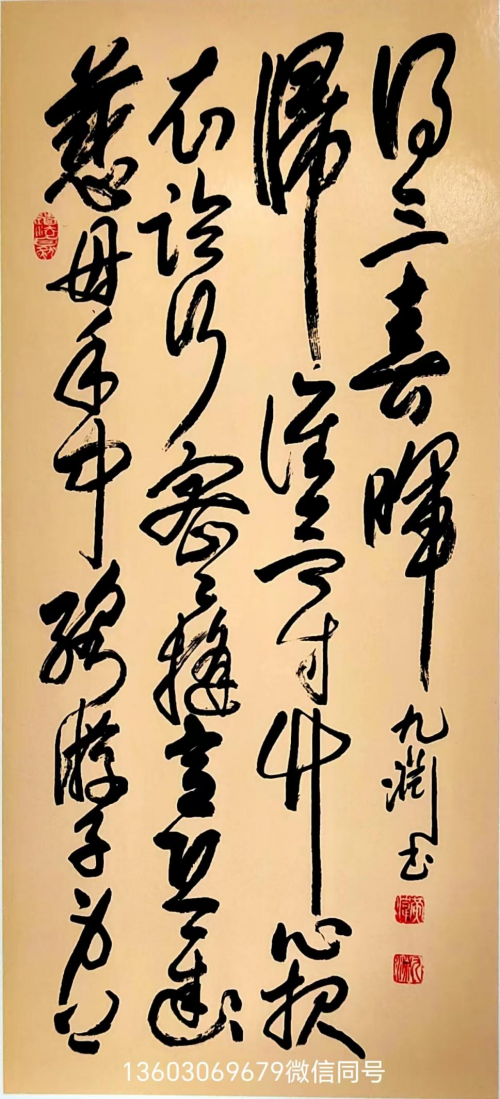 慈母手中線遊子身上
衣臨行密〻縫意恐遲〻
歸誰言寸草心報
得三春暉
九淵书
13603069679微信同号